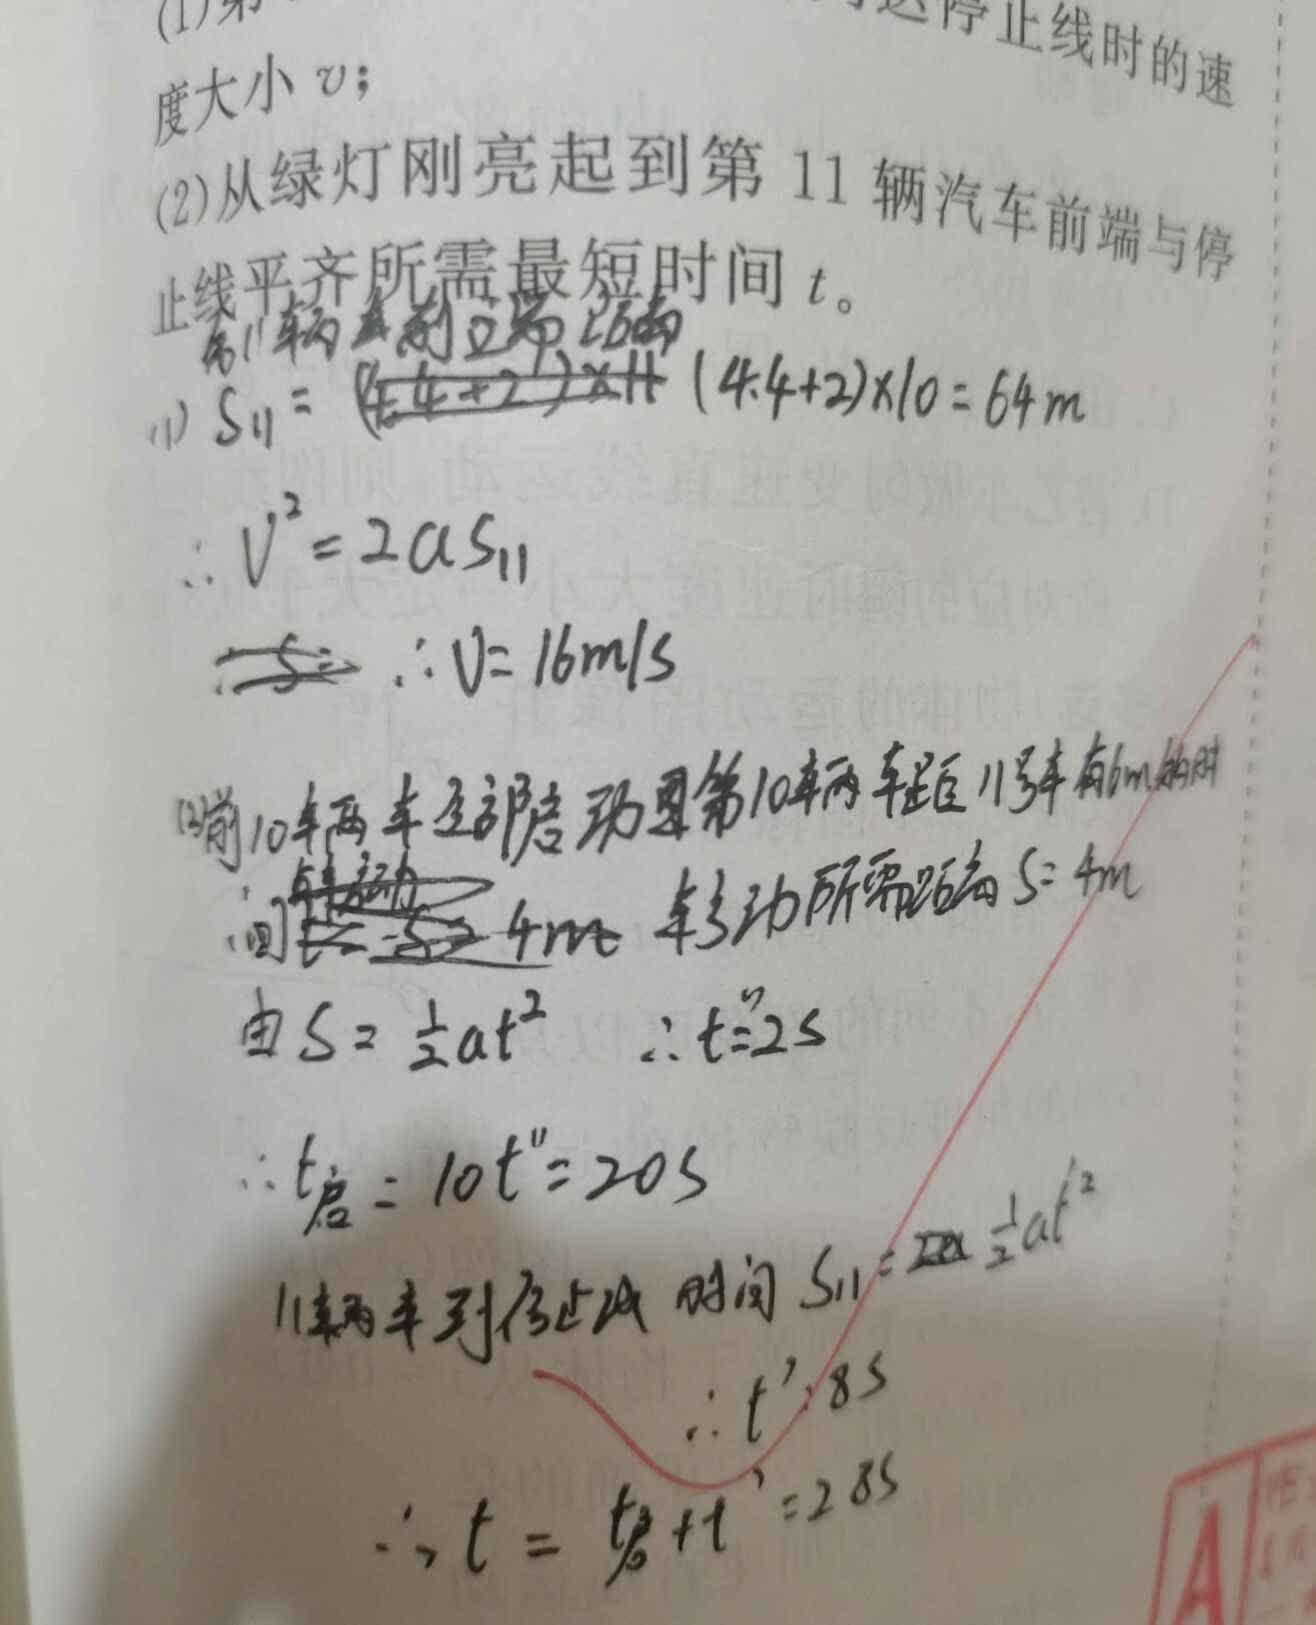 (1)第
达停止线时的速
度大小 v;
(2)从绿灯刚亮起到第 11 辆汽车前端与停
止线平齐所需最短时间 t。
第11辆车到立端距离
(1) S₁₁ = (4.4+2)×11 (4.4+2)×10=64m
∴ V²=2aS₁₁
∴ V=16m/s
(2)前10辆车全部启动且第10辆车距11号车有6m的时
间 4m 移动所需距离 S=4m
由 S= ½at² ∴ t"=2s
∴ t启 = 10t"=20s
11辆车到停止线 时间 S₁₁= ½at'²
∴ t'=8s
∴ t = t启+t'=28s
A